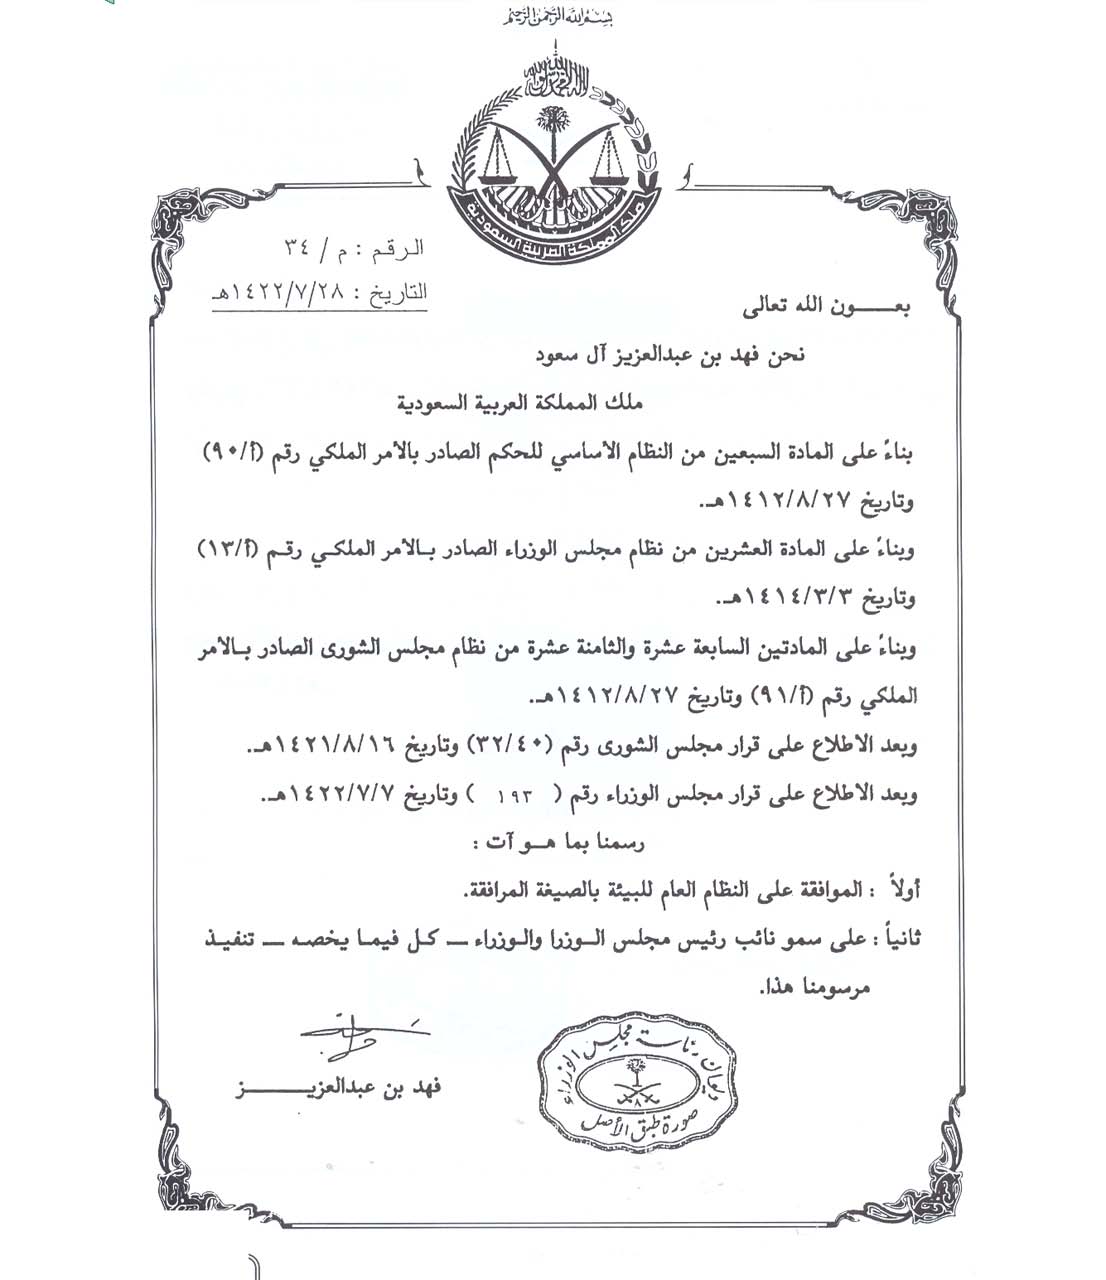 بسم الله الرحمن الرحيم
لا إله إلا الله محمد رسول الله
ملك المملكة العربية السعودية
الرقم : م / ٣٤
التاريخ : ١٤٢٢/٧/٢٨هـ
بعـــون الله تعالى
نحن فهد بن عبدالعزيز آل سعود
ملك المملكة العربية السعودية
بناءً على المادة السبعين من النظام الأساسي للحكم الصادر بالأمر الملكي رقم (أ/٩٠)
وتاريخ ١٤١٢/٨/٢٧هـ.
وبناءً على المادة العشرين من نظام مجلس الوزراء الصادر بـالأمر الملكـي رقـم (أ/١٣)
وتاريخ ١٤١٤/٣/٣هـ.
وبناءً على المادتين السابعة عشرة والثامنة عشرة من نظام مجلس الشورى الصادر بـالأمر
الملكي رقم (أ/٩١) وتاريخ ١٤١٢/٨/٢٧هـ.
وبعد الاطلاع على قرار مجلس الشورى رقم (٣٢/٤٠) وتاريخ ١٤٢١/٨/١٦هـ.
وبعد الاطلاع على قرار مجلس الوزراء رقم ( ١٩٣ ) وتاريخ ١٤٢٢/٧/٧هـ.
رسمنا بما هــو آت :
أولاً : الموافقة على النظام العام للبيئة بالصيغة المرافقة.
ثانياً : على سمو نائب رئيس مجلس الـوزرا والـوزراء ــ كـل فيمـا يخصـه ــ تنفيـذ
مرسومنا هذا.
فهد بن عبدالعزيـــــز
ديوان رئاسة مجلس الوزراء
٨
صورة طبق الأصل